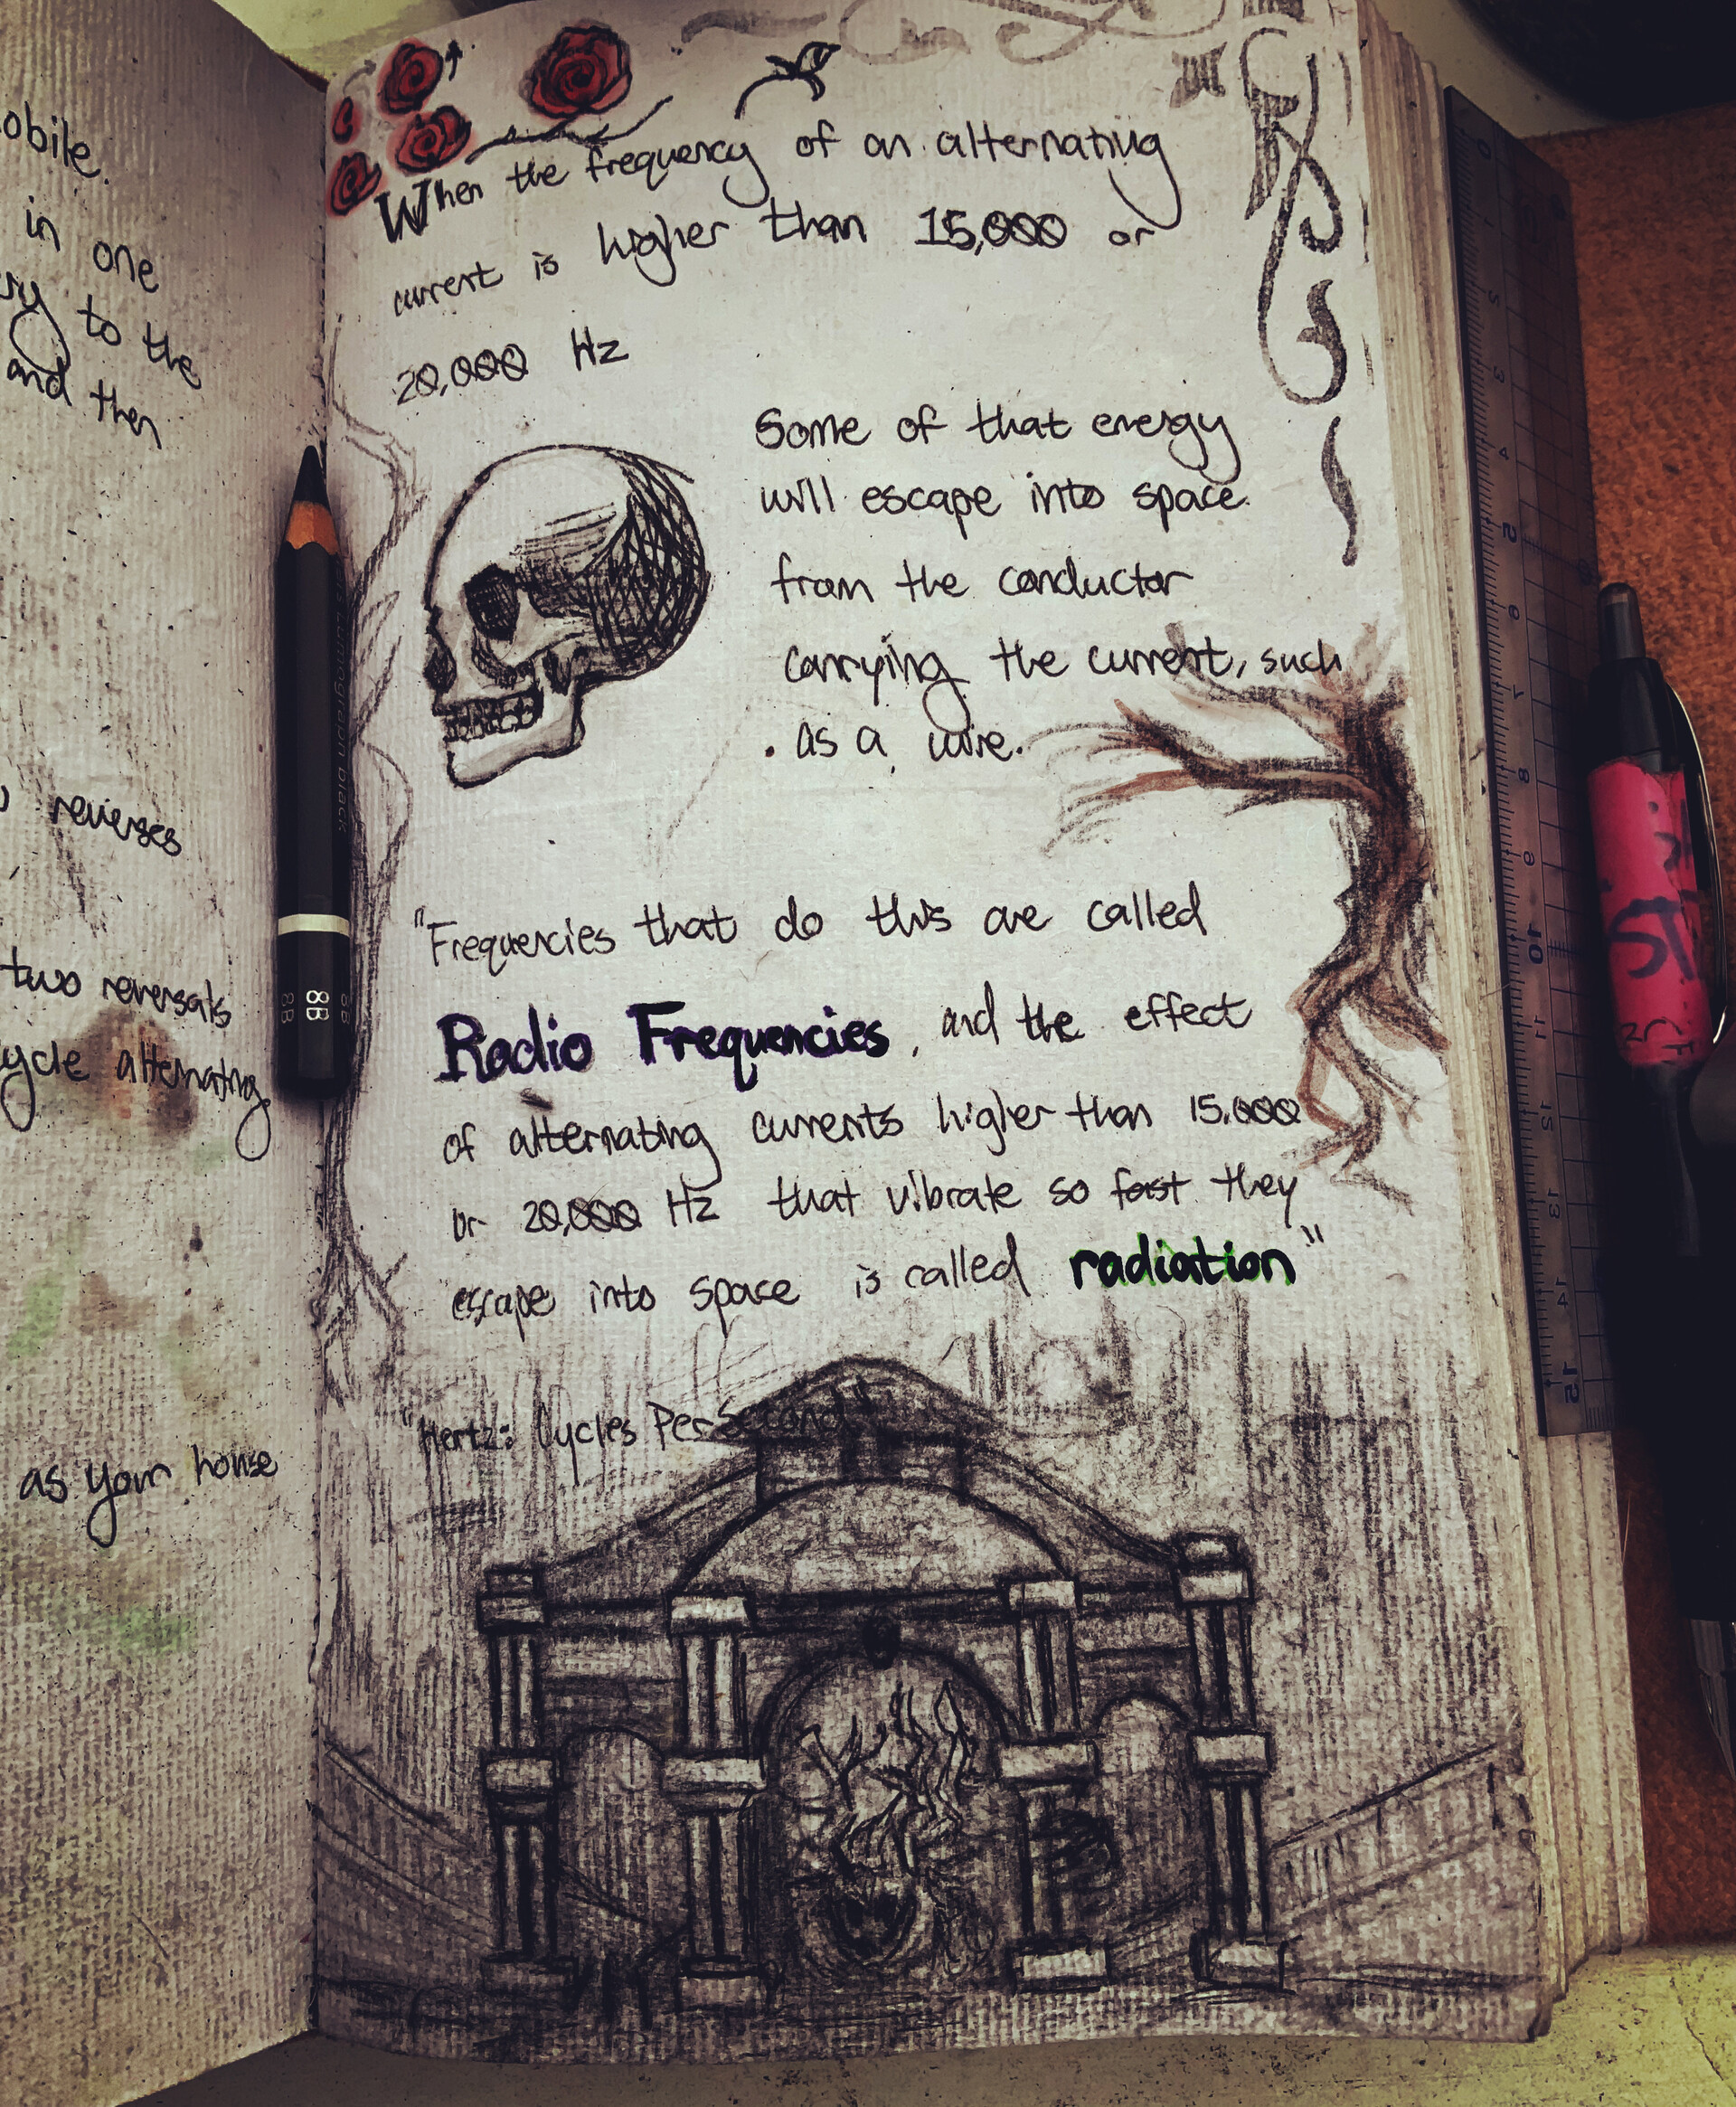 obile.
in one
ry to the
and then
reverses
two reversals
ycle alternating
as your house
When the frequency of an alternating
current is higher than 15,000 or
20,000 Hz
Some of that energy
will escape into space
from the conductor
carrying the current, such
. as a wire.
"Frequencies that do this are called
Radio Frequencies, and the effect
of alternating currents higher than 15.000
or 20,000 Hz that vibrate so fast they
escape into space is called radiation"
"Hertz: Cycles Per Second"
8B
8B
8B
0
1
2
3
4
5
6
7
8
9
10
11
12
13
14
15
ST